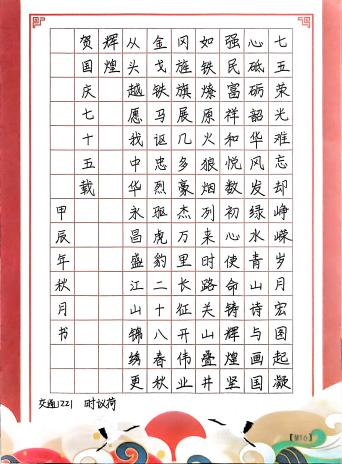 七五荣光难忘却峥嵘岁月宏图起凝
心砥砺韶华风发绿水青山诗与画国
强民富祥和悦数初心使命铸辉煌坚
如铁燎原火狼烟列来时路关山叠井
冈旌旗展几多豪杰万里长征开伟业
金戈铁马讴忠烈驱虎豹二十八春秋
从头越愿我中华永昌盛江山锦绣更
辉煌
贺国庆七十五载
甲辰年秋月书
交通1221 时议荷